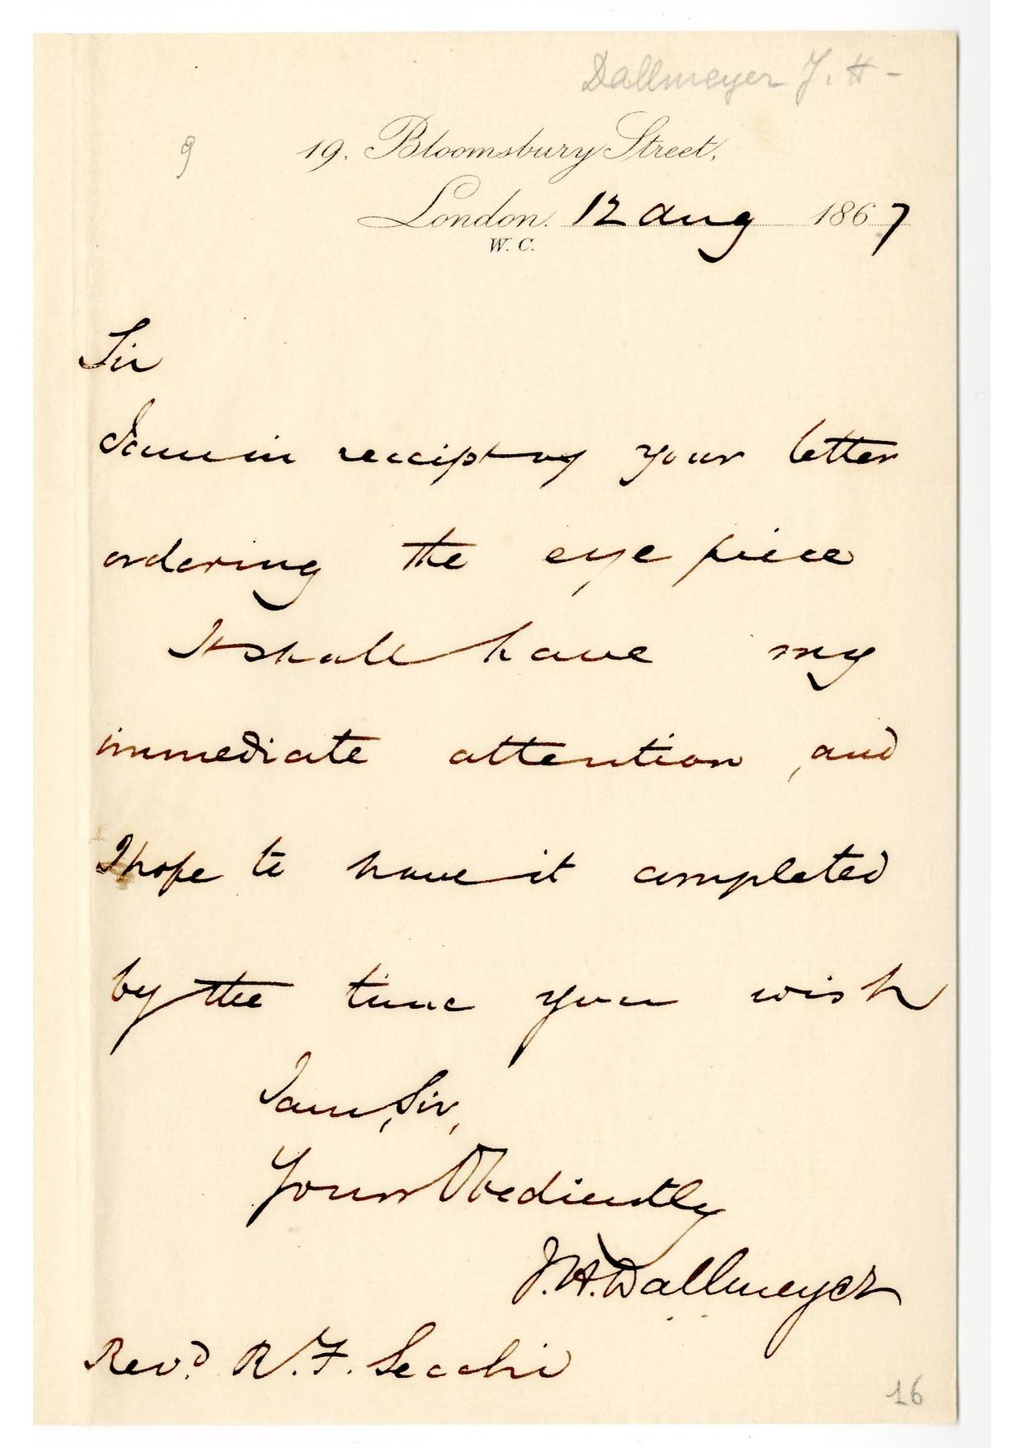 Dallmeyer J. H-
9
19. Bloomsbury Street,
London. 12 Aug 1867
W. C.
Sir
I am in receipt of your letter
ordering the eye piece
It shall have my
immediate attention, and
I hope to have it completed
by the time you wish
I am, Sir,
Yours Obediently
J.H. Dallmeyer
Revd. R. F. Secchi
16